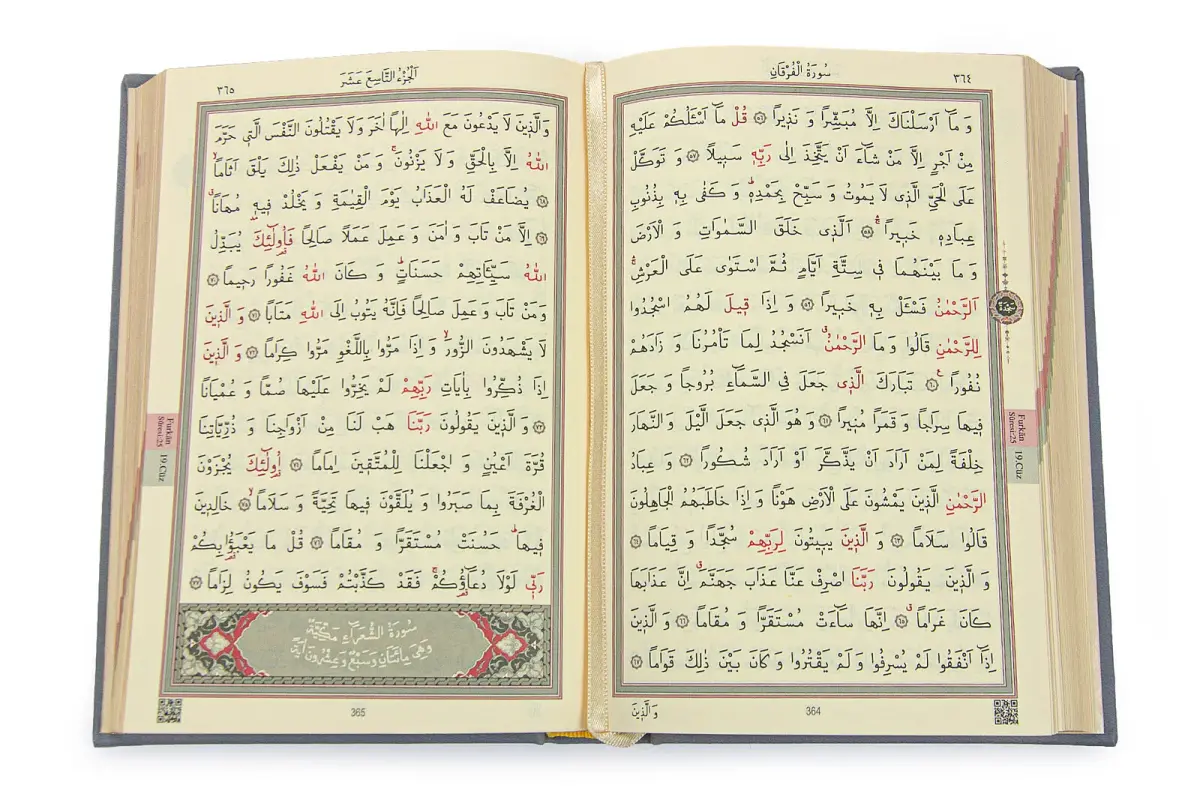 ٣٦٤
سُورَةُ الْفُرْقَانِ
وَمَٓا اَرْسَلْنَاكَ اِلَّا مُبَشِّرًا وَ نَذ۪يرًا ﴿٥٦﴾ قُلْ مَٓا اَسْـَٔلُكُمْ عَلَيْهِ
مِنْ اَجْرٍ اِلَّا مَنْ شَٓاءَ اَنْ يَتَّخِذَ اِلٰى رَبِّه۪ سَب۪يلًا ﴿٥٧﴾ وَ تَوَكَّلْ
عَلَى الْحَيِّ الَّذ۪ي لَا يَمُوتُ وَ سَبِّحْ بِحَمْدِه۪ۜ وَ كَفٰى بِه۪ بِذُنُوبِ
عِبَادِه۪ خَب۪يرًاۚ ﴿٥٨﴾ اَلَّذ۪ي خَلَقَ السَّمٰوَاتِ وَ الْاَرْضَ
وَ مَا بَيْنَهُمَا ف۪ي سِتَّةِ اَيَّامٍ ثُمَّ اسْتَوٰى عَلَى الْعَرْشِۚ
اَلرَّحْمٰنُ فَسْـَٔلْ بِه۪ خَب۪يرًا ﴿٥٩﴾ وَ اِذَا ق۪يلَ لَهُمُ اسْجُدُوا
لِلرَّحْمٰنِ قَالُوا وَ مَا الرَّحْمٰنُۗ اَنَسْجُدُ لِمَا تَأْمُرُنَا وَ زَادَهُمْ
نُفُورًا ﴿٦٠﴾ تَبَارَكَ الَّذ۪ي جَعَلَ فِي السَّمَٓاءِ بُرُوجًا وَ جَعَلَ
ف۪يهَا سِرَاجًا وَ قَمَرًا مُن۪يرًا ﴿٦١﴾ وَ هُوَ الَّذ۪ي جَعَلَ الَّيْلَ وَ النَّهَارَ
خِلْفَةً لِمَنْ اَرَادَ اَنْ يَذَّكَّرَ اَوْ اَرَادَ شُكُورًا ﴿٦٢﴾ وَ عِبَادُ
الرَّحْمٰنِ الَّذ۪ينَ يَمْشُونَ عَلَى الْاَرْضِ هَوْنًا وَ اِذَا خَاطَبَهُمُ الْجَاهِلُونَ
قَالُوا سَلَامًا ﴿٦٣﴾ وَ الَّذ۪ينَ يَب۪يتُونَ لِرَبِّهِمْ سُجَّدًا وَ قِيَامًا ﴿٦٤﴾
وَ الَّذ۪ينَ يَقُولُونَ رَبَّنَا اصْرِفْ عَنَّا عَذَابَ جَهَنَّمَۗ اِنَّ عَذَابَهَا
كَانَ غَرَامًاۗ ﴿٦٥﴾ اِنَّهَا سَٓاءَتْ مُسْتَقَرًّا وَ مُقَامًا ﴿٦٦﴾ وَ الَّذ۪ينَ
اِذَٓا اَنْفَقُوا لَمْ يُسْرِفُوا وَ لَمْ يَقْتُرُوا وَ كَانَ بَيْنَ ذٰلِكَ قَوَامًا ﴿٦٧﴾
سَجْدَة
Furkân
Sûresi:25
19.Cüz
364
وَالَّذ۪ينَ
اَلْجُزْءُ التَّاسِعَ عَشَرَ
٣٦٥
وَالَّذ۪ينَ لَا يَدْعُونَ مَعَ اللّٰهِ اِلٰهًا اٰخَرَ وَ لَا يَقْتُلُونَ النَّفْسَ الَّت۪ي حَرَّمَ
اللّٰهُ اِلَّا بِالْحَقِّ وَ لَا يَزْنُونَۚ وَ مَنْ يَفْعَلْ ذٰلِكَ يَلْقَ اَثَامًاۙ
﴿٦٨﴾ يُضَاعَفْ لَهُ الْعَذَابُ يَوْمَ الْقِيٰمَةِ وَ يَخْلُدْ ف۪يه۪ مُهَانًاۗ
﴿٦٩﴾ اِلَّا مَنْ تَابَ وَ اٰمَنَ وَ عَمِلَ عَمَلًا صَالِحًا فَاُو۬لٰٓئِكَ يُبَدِّلُ
اللّٰهُ سَيِّـَٔاتِهِمْ حَسَنَاتٍۜ وَ كَانَ اللّٰهُ غَفُورًا رَح۪يمًا ﴿٧٠﴾
وَمَنْ تَابَ وَ عَمِلَ صَالِحًا فَاِنَّهُ يَتُوبُ اِلَى اللّٰهِ مَتَابًا ﴿٧١﴾ وَ الَّذ۪ينَ
لَا يَشْهَدُونَ الزُّورَۙ وَ اِذَا مَرُّوا بِاللَّغْوِ مَرُّوا كِرَامًا ﴿٧٢﴾ وَ الَّذ۪ينَ
اِذَا ذُكِّرُوا بِاٰيَاتِ رَبِّهِمْ لَمْ يَخِرُّوا عَلَيْهَا صُمًّا وَ عُمْيَانًا
﴿٧٣﴾ وَ الَّذ۪ينَ يَقُولُونَ رَبَّنَا هَبْ لَنَا مِنْ اَزْوَاجِنَا وَ ذُرِّيَّاتِنَا
قُرَّةَ اَعْيُنٍ وَ اجْعَلْنَا لِلْمُتَّق۪ينَ اِمَامًا ﴿٧٤﴾ اُو۬لٰٓئِكَ يُجْزَوْنَ
الْغُرْفَةَ بِمَا صَبَرُوا وَ يُلَقَّوْنَ ف۪يهَا تَحِيَّةً وَ سَلَامًاۙ ﴿٧٥﴾ خَالِد۪ينَ
ف۪يهَاۜ حَسُنَتْ مُسْتَقَرًّا وَ مُقَامًا ﴿٧٦﴾ قُلْ مَا يَعْبَؤُ۬ا بِكُمْ
رَبّ۪ي لَوْلَا دُعَٓاؤُ۬كُمْۚ فَقَدْ كَذَّبْتُمْ فَسَوْفَ يَكُونُ لِزَامًا ﴿٧٧﴾
سُورَةُ الشُّعَرَاءِ مَكِّيَّةٌ
وَهِيَ مِائَتَانِ وَسَبْعٌ وَعِشْرُونَ آيَةً
Furkân
Sûresi:25
19.Cüz
365